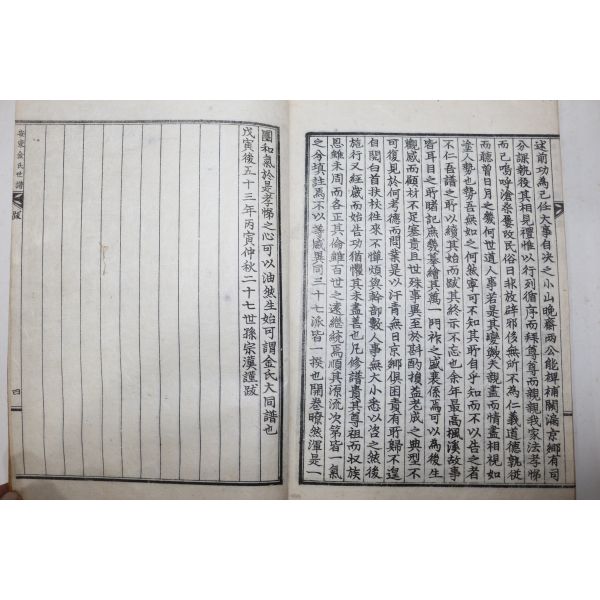 述前功為己任大事自决之小山晚齋兩公能裨補闕漏京鄉有司
分課執役其相見禮惟以行列循序而拜尊尊而親親我家法孝悌
而已嗚呼滄桑屢改民俗日非放辟邪侈無所不為仁義道德孰從
而聽曾日月之幾何世道人事若是其變歟夫親盡而情盡相視如
塗人勢也勢吾無如之何然寧可不知其所自乎知而不以告之者
不仁吾譜之所以續其始而跋其終示不忘也余年最高楓溪故事
皆耳目之所睹記庶幾摹繪其萬一門祚之盛衰係焉可以為後生
觀感而顧材不足塞責且世殊事異至於斟酌損益老成之典型不
可復見於何考德而問業是以汗青無日京鄉俱困責有所歸不遑
自閑白首扶杖徃來不憚煩與幹部數人事無大小悉以咨之然後
施行又經歲而始告功猶懼其未盡善也凡修譜貴其尊祖而収族
思雖未周而各正其倫雖百世之遠継統焉順其源流次第皆一氣
之分塡註焉不以等威異同三十七派皆一揆也開卷暸然渾是一
團和氣於是孝悌之心可以油然生始可謂金氏大同譜也
戊寅後五十三年丙寅仲秋二十七世孫宗漢謹跋
安東金氏世譜
跋
四